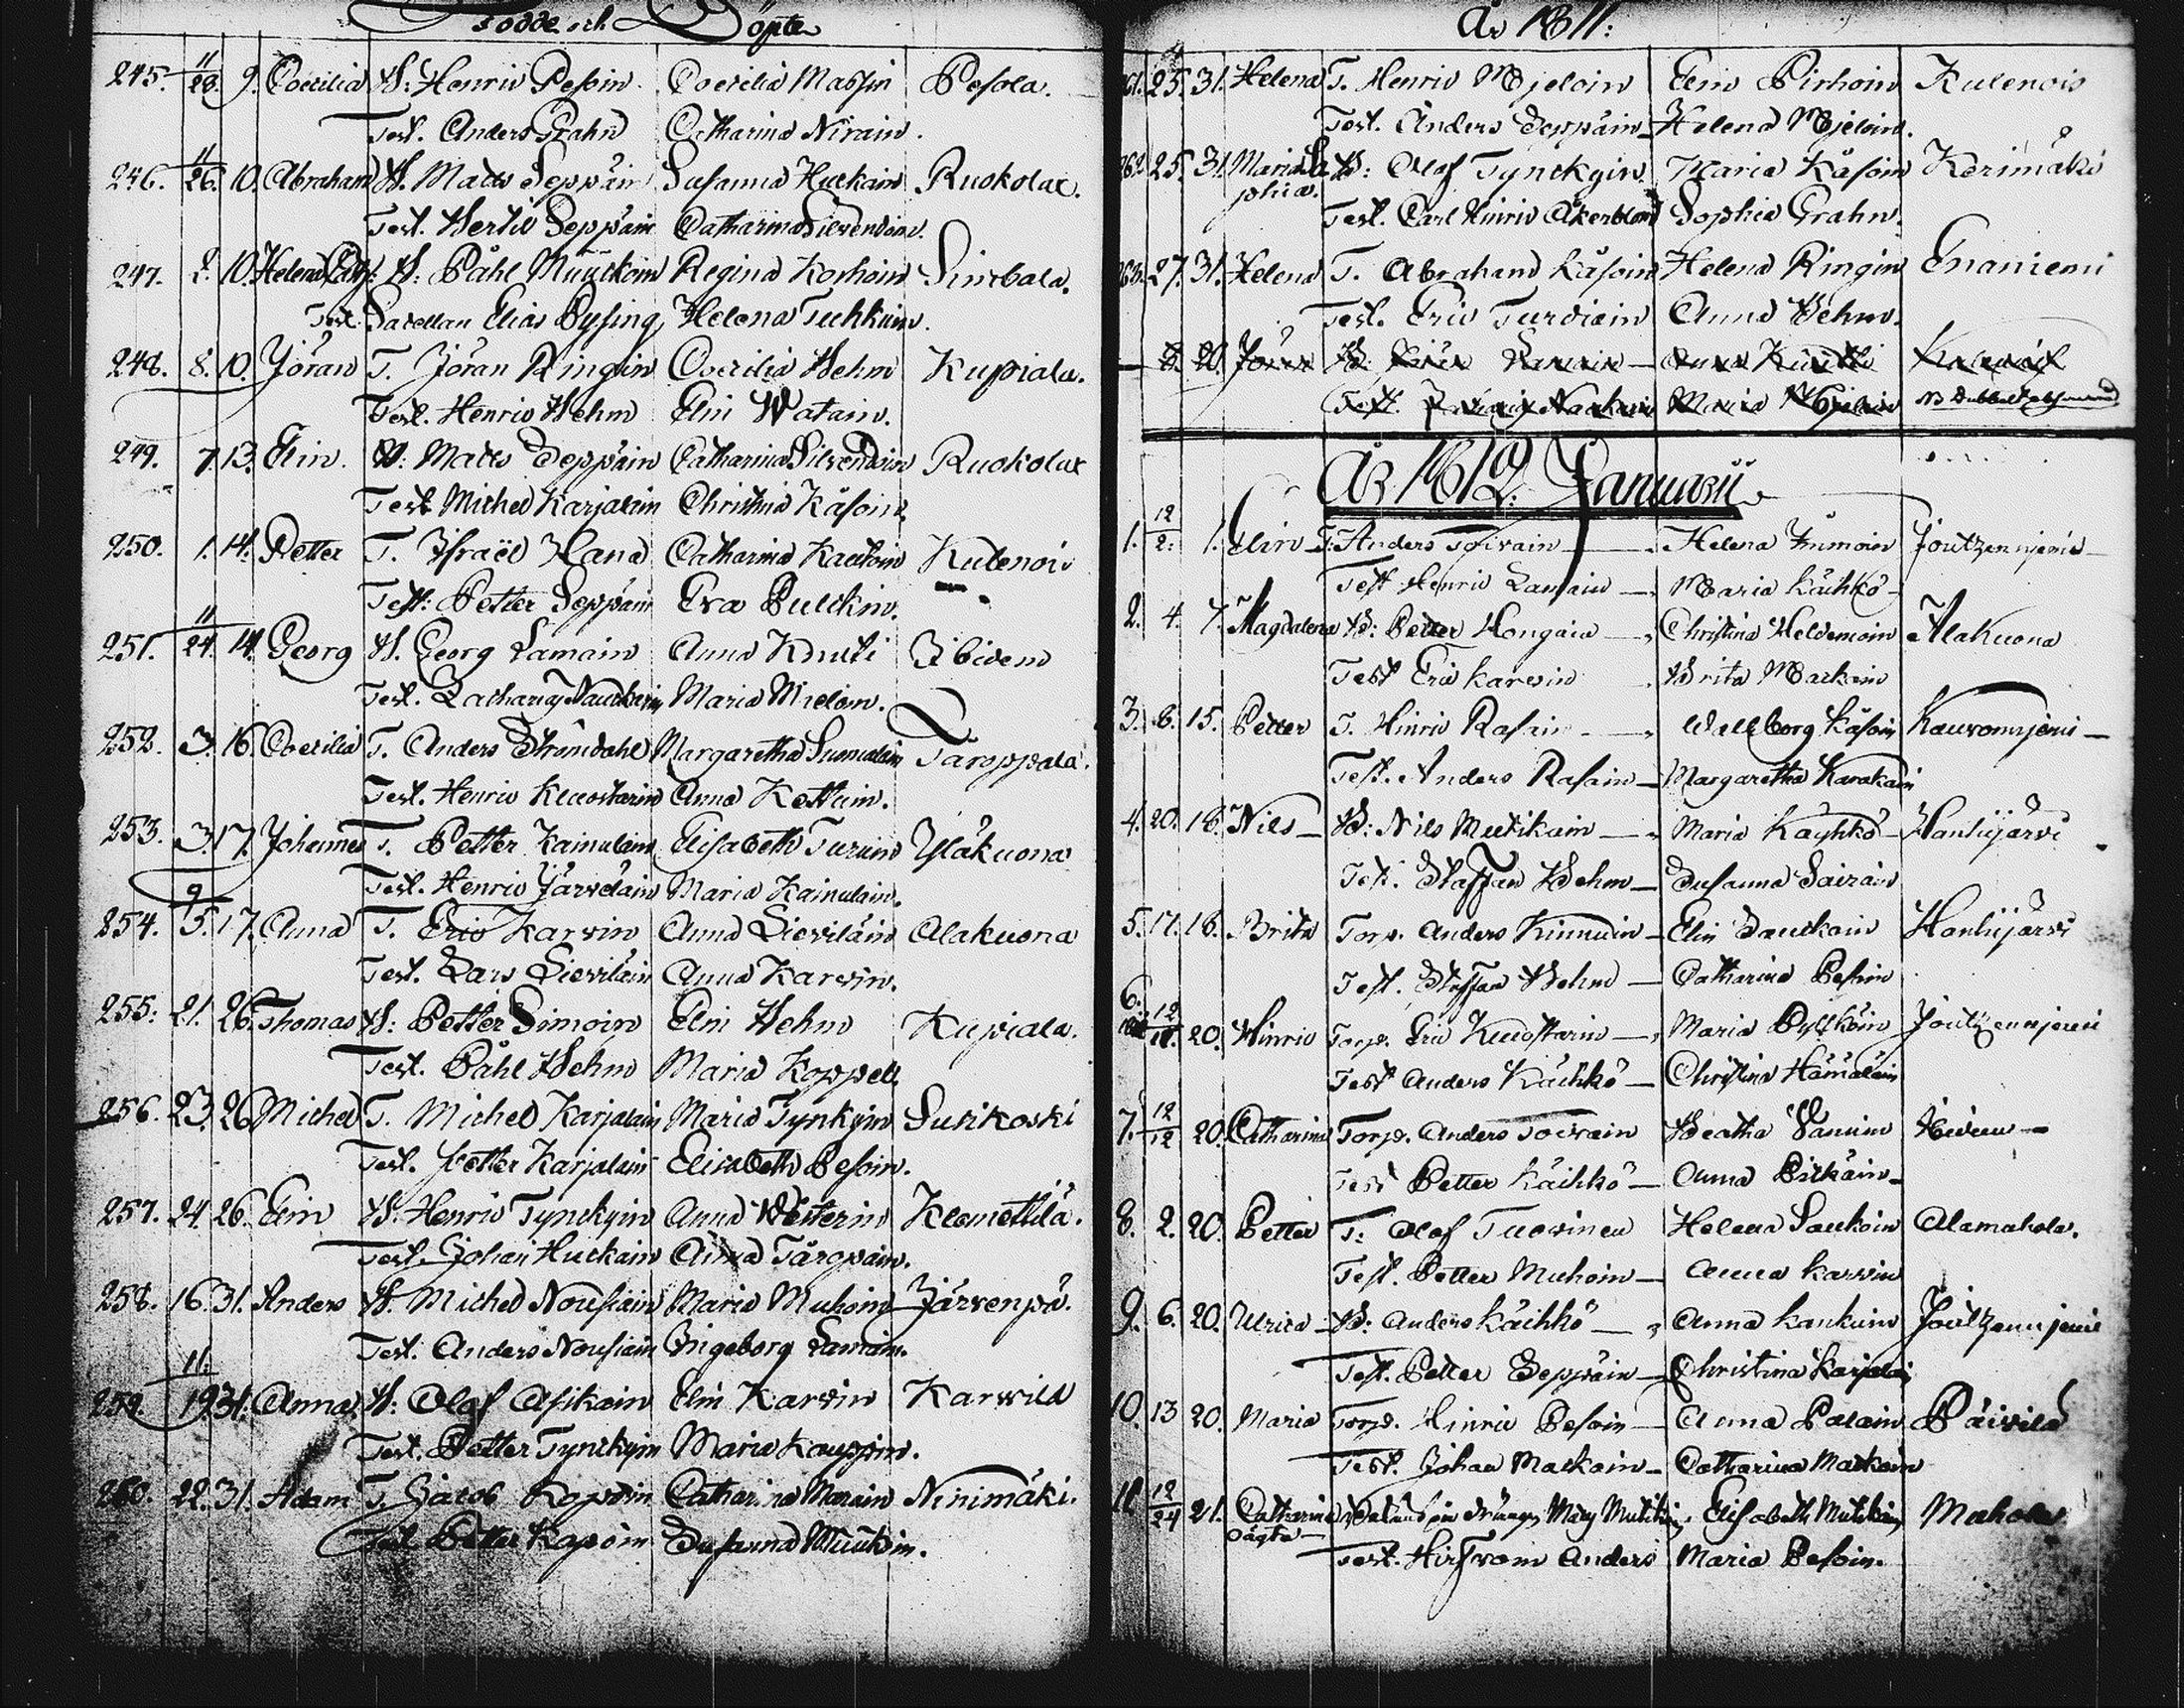 Födde och Döpte
245. 11/28. 9. Coecilia B: Henric Pesoin Coecilia Massin Pesola.
Test. Anders Grahn Catharina Nirain.
246. 11/26. 10. Abraham B. Matts Seppäin Susanna Huckain Ruokolax.
Test. Bertil Seppäin Catharina Silvendoin.
247. 2. 10. Helena B: Påhl Muukoin Regina Korhoin Simbala.
Test. Sacellan Elias Pysing, Helena Tuhkuin.
248. 8. 10. Jöran T. Jöran Ringin Coecilia Behm Kupiala.
Test. Henric Behm Elin Watain.
249. 7. 13. Elin. B: Matts Seppäin Catharina Silvendoin Ruokolax
Test Michel Karjalain Christina Käsoin.
250. 1. 14. Petter T. Israël Hana Catharina Kautoin Kulenois
Test: Petter Seppäin Eva Pulckin.
251. 11/24. 14. Georg B. Georg Lamain Anna Knuti Ibidem
Test. Zachary Nauckarin Maria Mieloin.
252. 3. 16. Coecilia T. Anders Strömdahl Margaretha Sumalain Taroppala.
Test. Henric Kuostarin Anna Kettuin.
253. 3. 17. Johannes T. Petter Kainulain Elisabeth Turuin Yläkuona
Test. Henric Järveläin Maria Kainulain.
254. 9/5. 17. Anna T. Eric Karvin Anna Lieviläin Alakuona
Test. Lars Lieviläin Anna Karvin.
255. 21. 26. Thomas B: Petter Simoin Elin Behm Kupiala.
Test. Påhl Behm Maria Koppell.
256. 23. 26. Michel T. Michel Karjalain Maria Tynckyin Susikoski
Test. Petter Karjalain Elisabeth Pesoin.
257. 24. 26. Elin B. Henric Tynckyin Anna Westerin Klemettilä.
Test. Johan Huckain Anna Taropain.
258. 16. 31. Anders B. Michel Nousiain Maria Muhoin Järvenpä.
Test. Anders Nousiain Ingeborg Lamain.
259. 11/19. 31. Anna B: Olof Asikain Elin Karvin Karvila
Test. Petter Tynckyin Maria Kauppin.
260. 22. 31. Adam T. Jacob Kapoin Catharina Marain Ninimäki.
Test Petter Kapoin Susanna Muukoin.
År 1811:
25. 31. Helena T. Henric Mieloin Elin Pirhoin Kulenois
Test. Anders Seppäin Helena Mieloin.
25. 31. Maria So B: Olof Tynckyin Maria Käsoin Kerimäki
phia. Test. Carl Hinric Åkerblom Sophia Grahn.
27. 31. Helena T. Abraham Käsoin Helena Ringin Enaniemi
Test. Eric Turviain Anna Behm.
År 1812: Januarii
1. 12/2. 1. Elin T: Anders Toivain Helena Immoin Joutzenniemi
Test Henric Lamain Maria Käihkö
2. 4. 7. Magdalena B: Petter Hongain Christina Heldemoin Alakuona
Test Eric Karvin Brita Mackoin
3. 6. 15. Petter T. Hinric Rasain Wallborg Käsoin Kauvonniemi
Test. Anders Rasain Margaretha Karakain
4. 20. 18. Nils B: Nils Mutikain Maria Käyhkö Hanhijärvi
Test. Staffan Behm Susanna Sairain
5. 17. 18. Brita Torp. Anders Kinnuin Elin Sauckoin Hanhijärvi
Test. Staffan Behm Catharina Pesoin
6. 12/18. 20. Hinric Torp. Eric Kuostarin Maria Pylköin Joutzenniemi
Test Anders Käihkö Christina Hämäläin
7. 12/12 20. Catharina Torp. Anders Toivain Beatha Vanuin Ibidem
Test Petter Käihkö Anna Pitkäin
8. 2. 20. Petter T: Olof Tuovinen Helena Sauckoin Alamahola.
Test. Petter Muhoin Anna Karvin
9. 6. 20. Ulrica B: Anders Käihkö Anna Kankuin Joutzenniemi
Test. Petter Seppäin Christina Karjalai
10. 13 20. Maria Torp. Hinric Pesoin Anna Palain Päivilä
Test. Johan Mackoin Catharina Mackoin
11. 12/24 21. Catharina Elisabeth Mutikain Muhola
oägta Test. Anders Maria Pesoin.